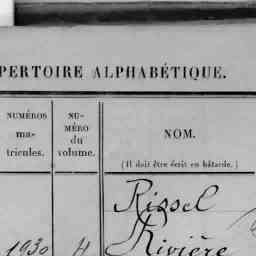 PERTOIRE ALPHABÉTIQUE.
NUMÉROS
ma-
tricules.
NU-
MÉRO
du
volume.
NOM.
(Il doit être écrit en bâtarde.)
Rissel
1930 4 Rivière